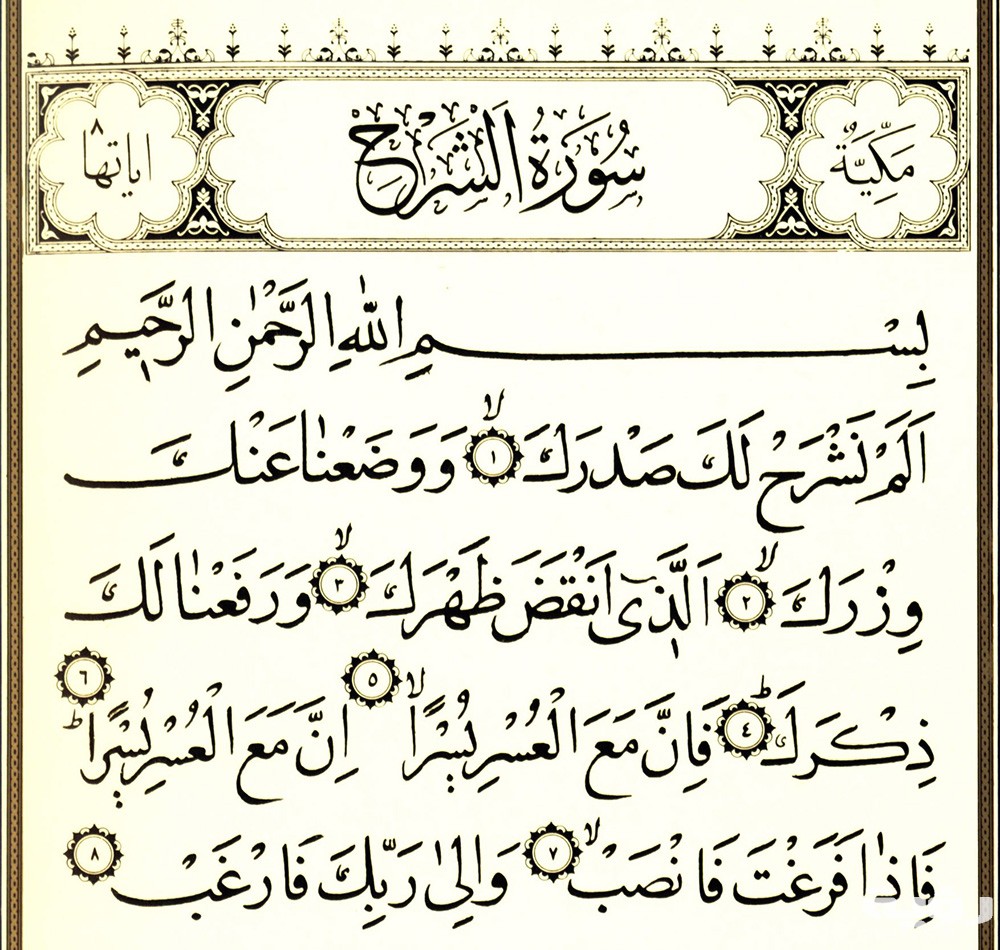 مَكِّيَّةٌ سُورَةُ الشَّرْحِ اياتها ٨
بِسْمِ اللّٰهِ الرَّحْمٰنِ الرَّح۪يمِ
اَلَمْ نَشْرَحْ لَكَ صَدْرَكَۙ ﴿١﴾ وَوَضَعْنَا عَنْكَ
وِزْرَكَۙ ﴿٢﴾ اَلَّذ۪ٓي اَنْقَضَ ظَهْرَكَۙ ﴿٣﴾ وَرَفَعْنَا لَكَ
ذِكْرَكَۜ ﴿٤﴾ فَاِنَّ مَعَ الْعُسْرِ يُسْرًاۙ ﴿٥﴾ اِنَّ مَعَ الْعُسْرِ يُسْرًاۜ ﴿٦﴾
فَاِذَا فَرَغْتَ فَانْصَبْۙ ﴿٧﴾ وَاِلٰى رَبِّكَ فَارْغَبْ ﴿٨﴾